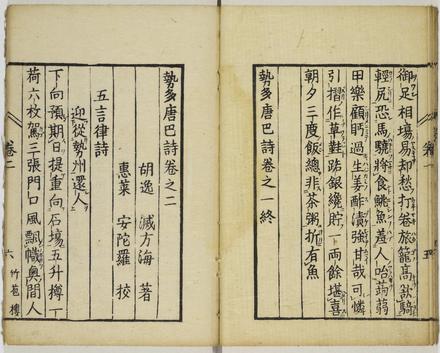 御足相場易却愁打宿旅籠高欲騎
輕尻恐馬驍將食魚羞人哈蒟蒻
甲樂顧眄過生姜酢漬強甘哉可憐
引摺作草鞋踏銀纔貯一両餘堪喜
朝夕三度飯總非茶粥折有魚
勢多唐巴詩卷之一終
勢多唐巴詩卷之二
胡逸 滅方海 著
惠萊 安陀羅 挍
五言律詩
迎從勢州還人
下向預期日提重向石塲五升樽一丁
荷六枚駕三張門口風飄幟奧間人
卷二 六 竹苞樓